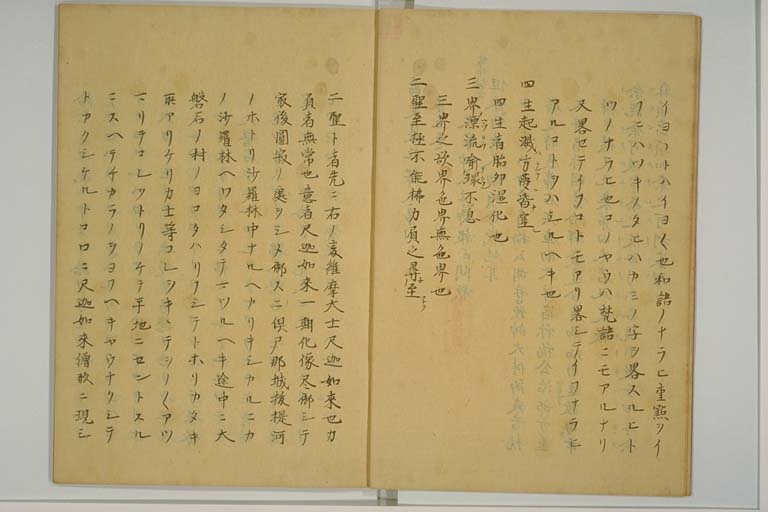 イヨハトハイヨ〱也和語ノナラヒ重點ヲイ
フニハツキノタヒハカミノ字ヲ畧スルヒト
ツノナラヒ也コノヤウハ梵語ニモアルナリ
又畧セテイフコトモアリ畧シテイフナラヒ
アルコトヲハシルヘキ也
四生起滅方夢皆空
四生者胎卵湿化也
三界漂流喩環不息
三界之欲界色界無色界也
二聖至極不能拂力負之尋至
二聖ト者先ニ右ノ哀維摩大士尺迦如来也力
負者無常也意者尺迦如来一期化像尽都シテ
寂後圓寂ノ處ヲシメ都スニ倶尸那城抜提河
ノホトリ沙羅林中ナルヘカリキシカルニカ
ノ沙羅林ヘワタシタテマツルヘキ途中ニ大
磐石ノ村ノヨコタハリフシテトホリカタキ
所アリケリカ士等コレヲキヽテシノ〱アツ
マリテコレヲトリノケテ平地ニセントスル
ニスヘテチカラノヲヨフヘキヤウナクシテ
トカクシケルトコロニ尺迦如来僧形ニ現シ